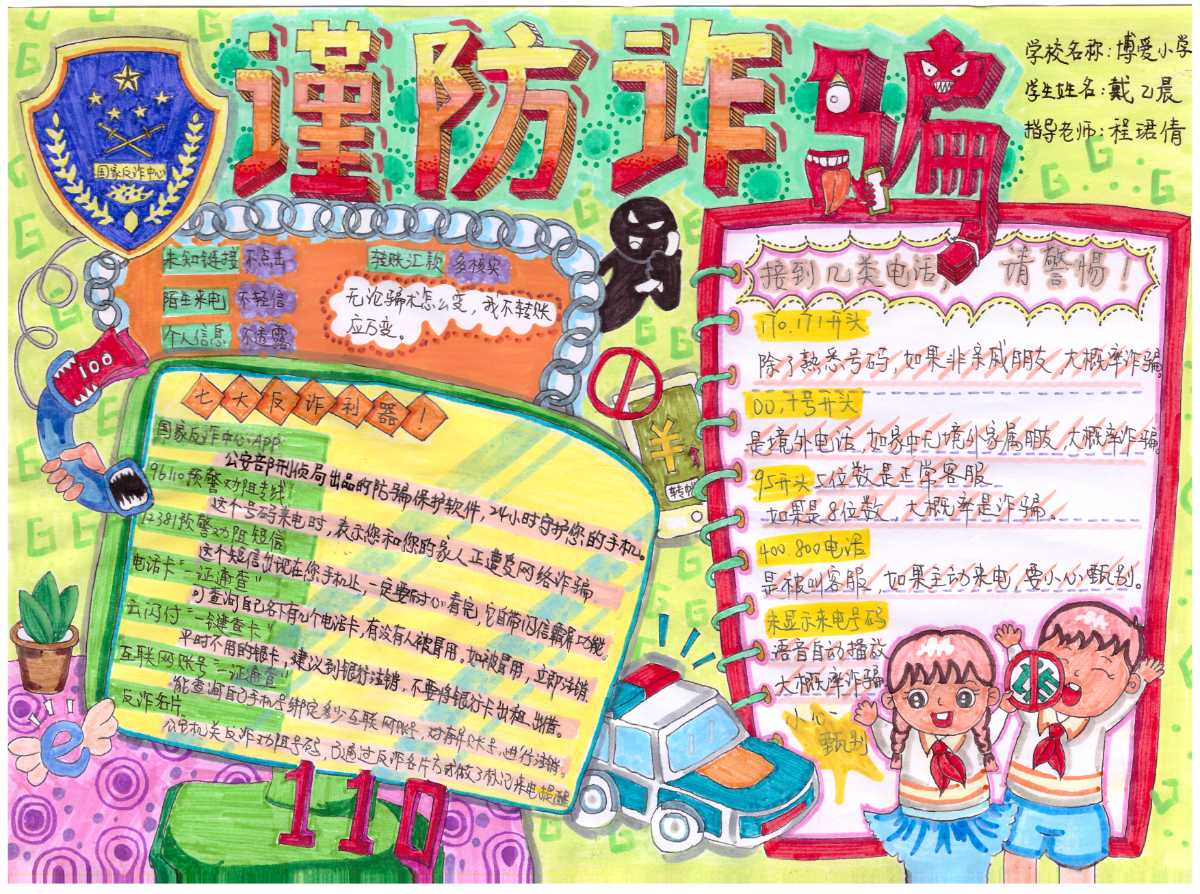 谨防诈骗
学校名称:博爱小学
学生姓名:戴乙晨
指导老师:程珺倩
国家反诈中心
未知链接 不点击
转账汇款 多核实
陌生来电 不轻信
个人信息 不透露
无论骗术怎么变,我不转账
应万变。
100
七大反诈利器!
国家反诈中心App
公安部刑侦局出品的防骗保护软件,24小时守护您的手机。
96110预警劝阻专线
这个号码来电时,表示您和你的家人正遭受网络诈骗
12381预警劝阻短信
这个短信出现在您手机上,一定要耐心看完,它自带闪信霸屏功能。
电话卡“一证通查”
可查询自己名下有几个电话卡,有没有人被冒用。如被冒用,立即注销
云闪付“一键查卡”
平时不用的银卡,建议到银行注销,不要将银行卡出租、出借。
互联网账号“一证通查”
能查询自己手机号绑定多少互联网账号,对有异议账号,进行注销。
反诈名片
公安机关反诈劝阻号码,已通过反诈名片方式做了标记来电提醒
¥
转帐
接到几类电话,请警惕!
170.171开头
除了熟悉号码,如果非亲戚朋友,大概率诈骗。
00,+号开头
是境外电话,如家中无境外家属朋友,大概率诈骗
95开头5位数是正常客服
如果是8位数,大概率是诈骗。
400.800电话
是被叫客服,如果主动来电,要小心甄别。
未显示来电号码
语音自动播放
大概率诈骗
小心
甄别
诈
e
110